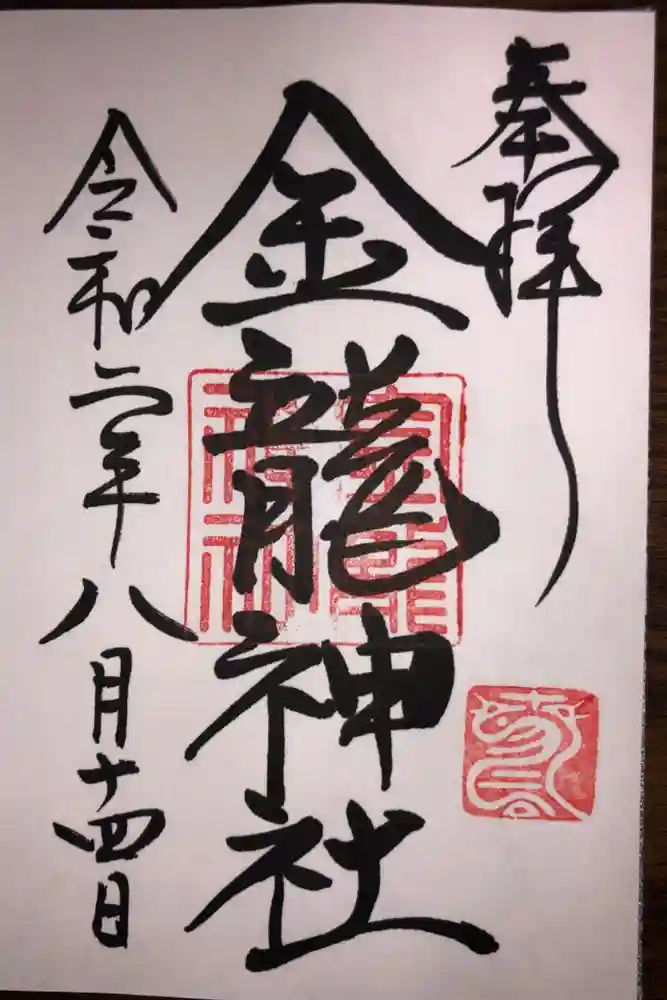 奉拝
金龍神社
令和二年八月十四日